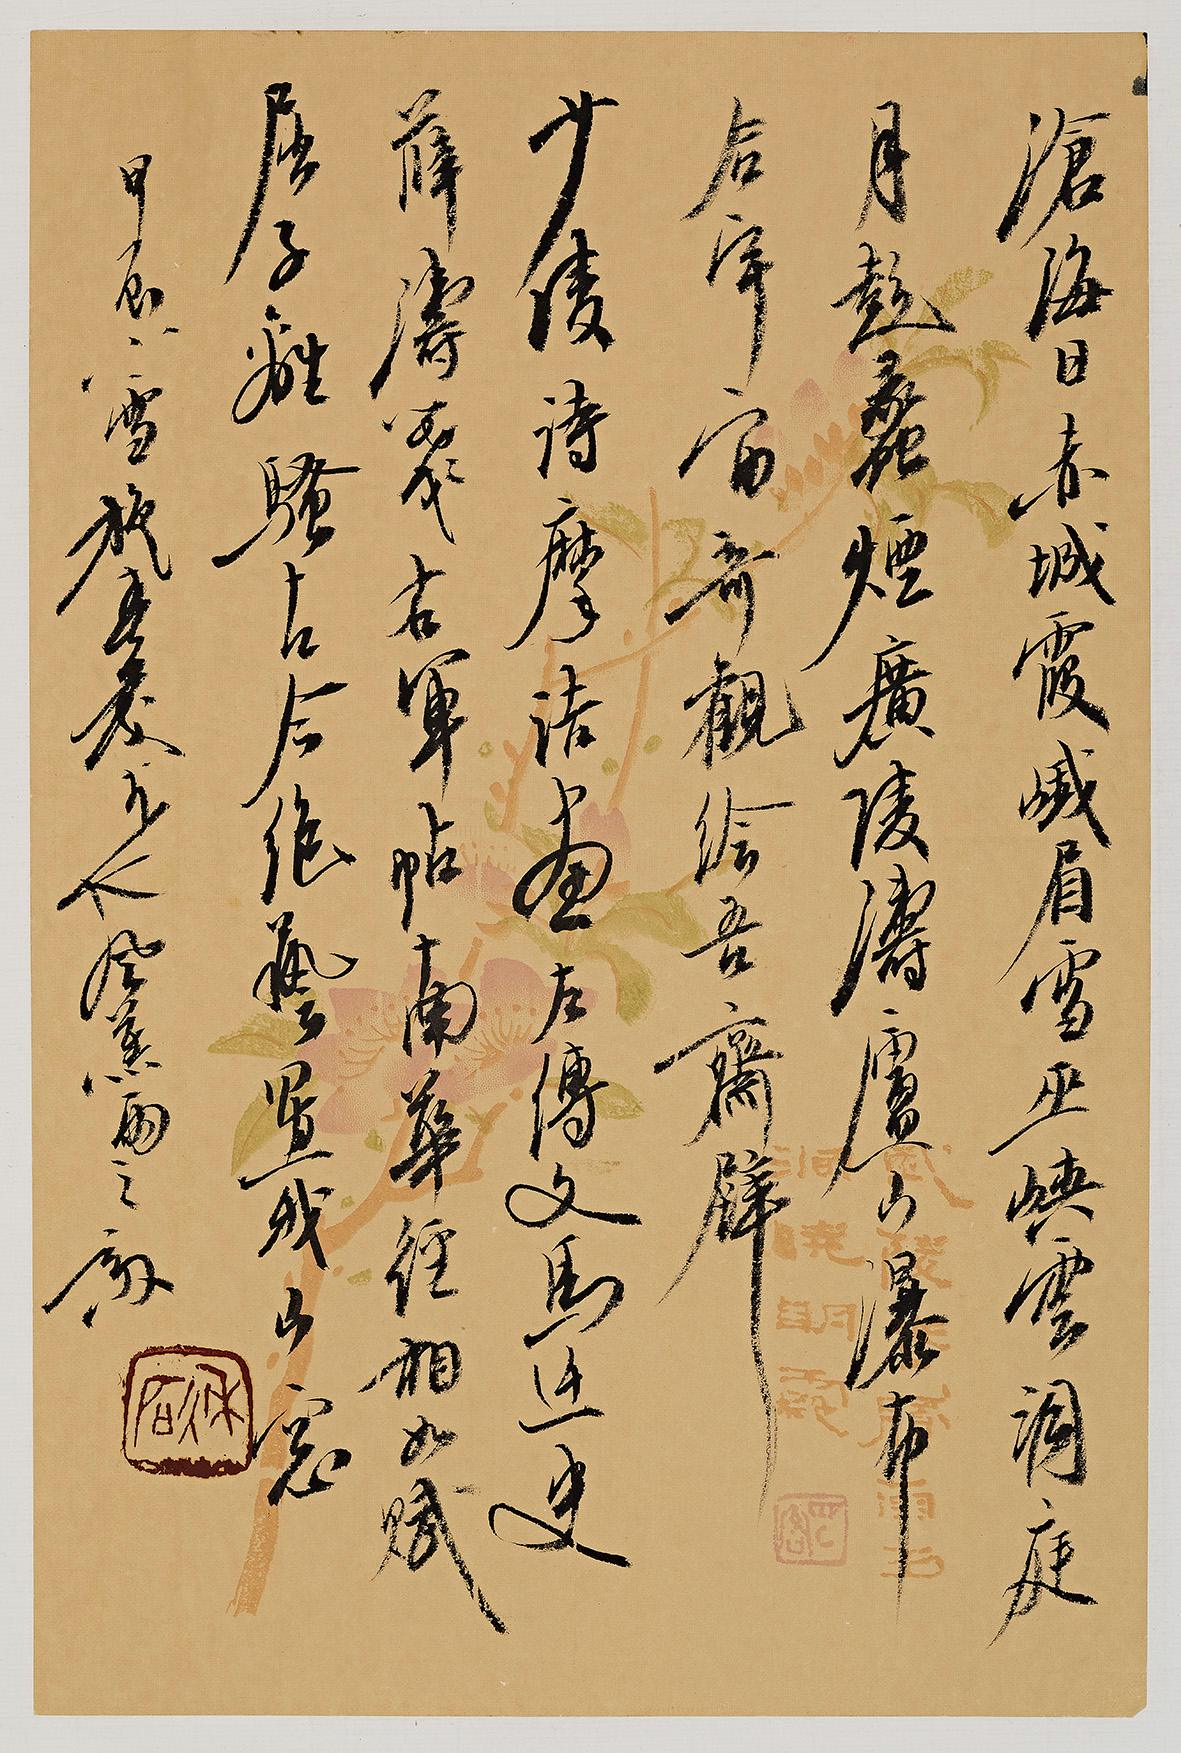 滄海日赤城霞峨眉雪巫峽雲洞庭
月彭蠡煙廣陵濤廬山瀑布
合宇宙奇觀繪吾齋壁
少陵詩摩詰畫左傳文馬迁史
薛濤箋右軍帖南華經相如賦
屈子離騷古今絕藝置我山窓
甲辰小雪